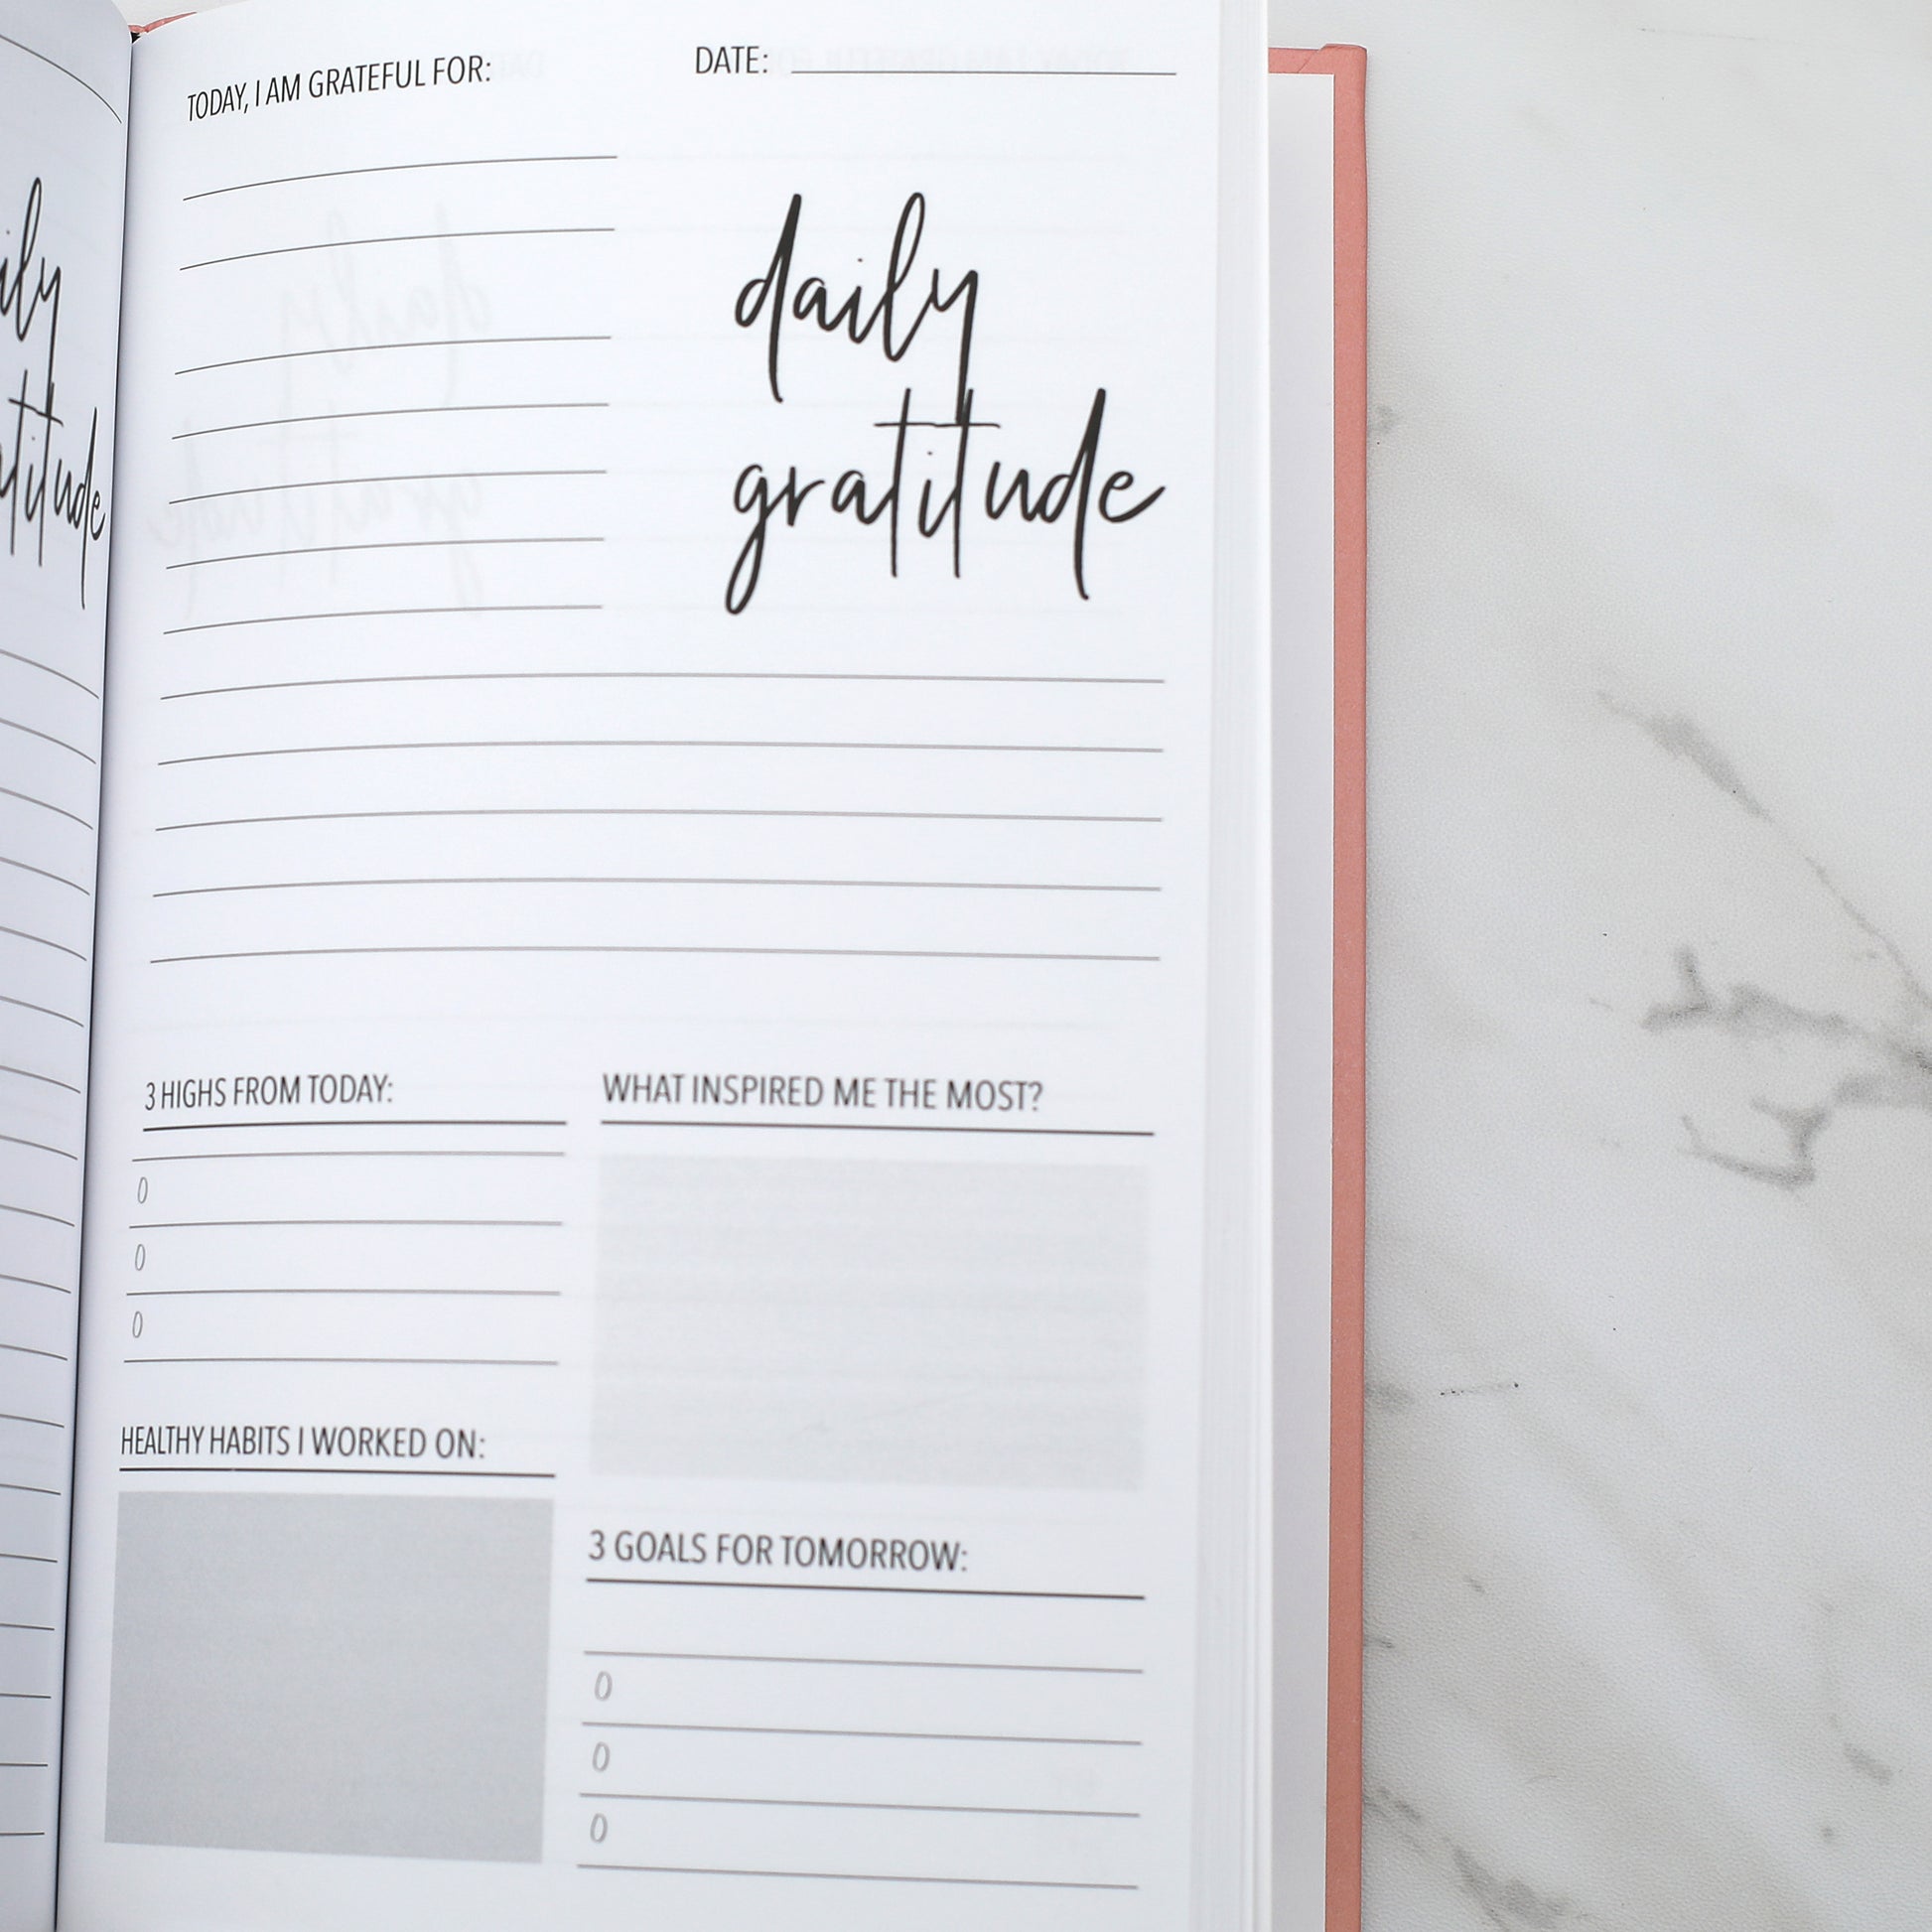 TODAY, I AM GRATEFUL FOR:
DATE:
daily
gratitude
3 HIGHS FROM TODAY:
WHAT INSPIRED ME THE MOST?
0
0
0
HEALTHY HABITS I WORKED ON:
3 GOALS FOR TOMORROW:
0
0
0